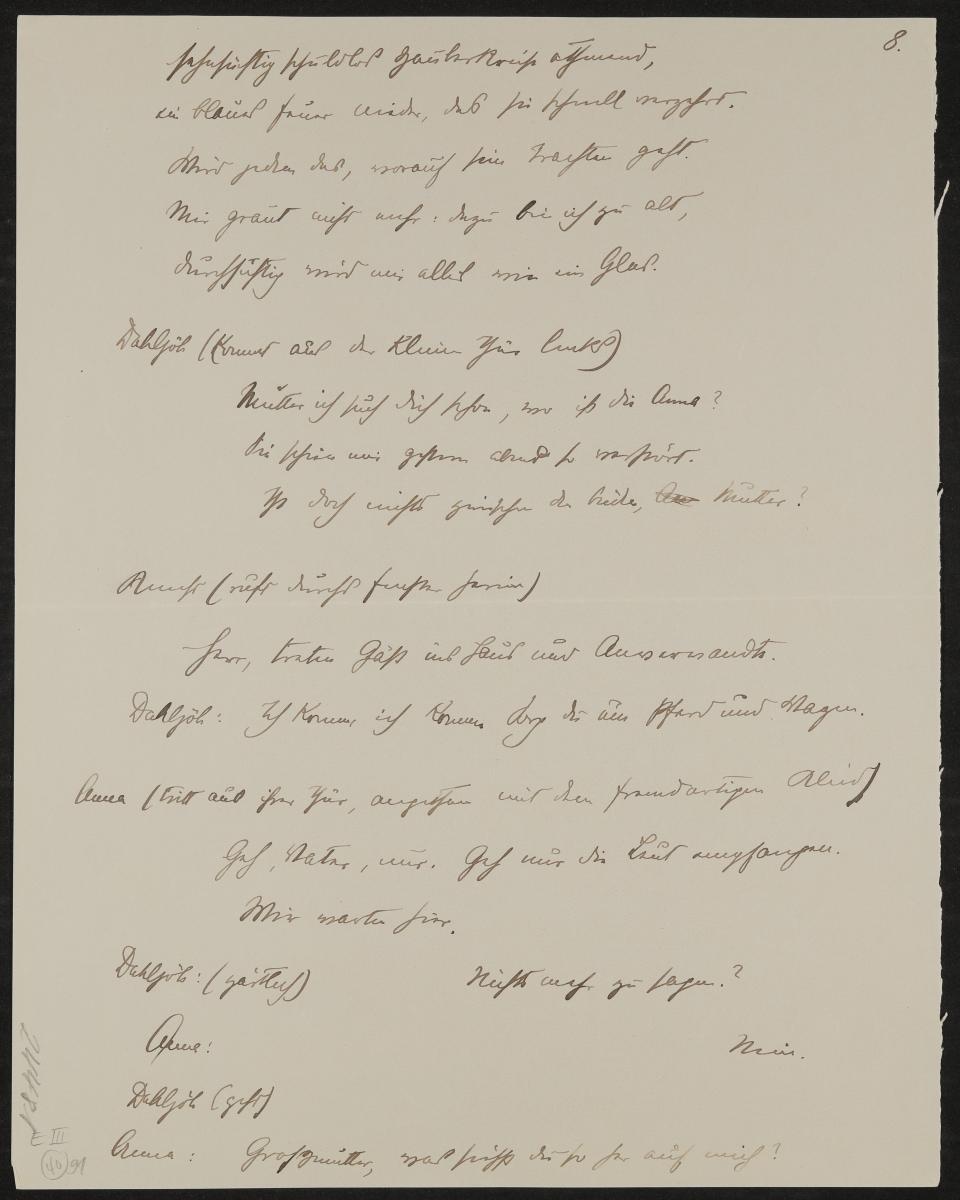 8.
sehnsüftig schuldlos Zauberkreise athmend,
ein blaues Feuer nieder, das sie schnell verzehrt.
Wird jedem das, worauf sein Trachten geht.
Mir graut nicht mehr: dazu bin ich zu alt,
durchsichtig wird mir alles wie ein Glas.
Dahljöh (kommt aus der kleinen Thür links)
Mutter ich such dich schon, wo ist die Anna?
Sie schien mir gestern abend so verstört.
Ist doch nichts zwischen den beiden, Mutter?
Knecht (ruft durchs Fenster herein)
Herr, treten Gäst ins Haus und Anverwandte.
Dahljöh: Ich komme ich komme sorg du um Pferd und Wagen.
Anna (tritt aus ihrer Thür, angethan mit dem fremdartigen Kleid)
Geh, Vater, nur. Geh nur die Leut empfangen.
Wir warten hier.
Dahljöh: (zärtlich) Nichts mehr zu sagen?
Anna: Nein.
Dahljöh (geht)
Anna: Großmutter, was siehst du so her auf mich?
E III
40 91